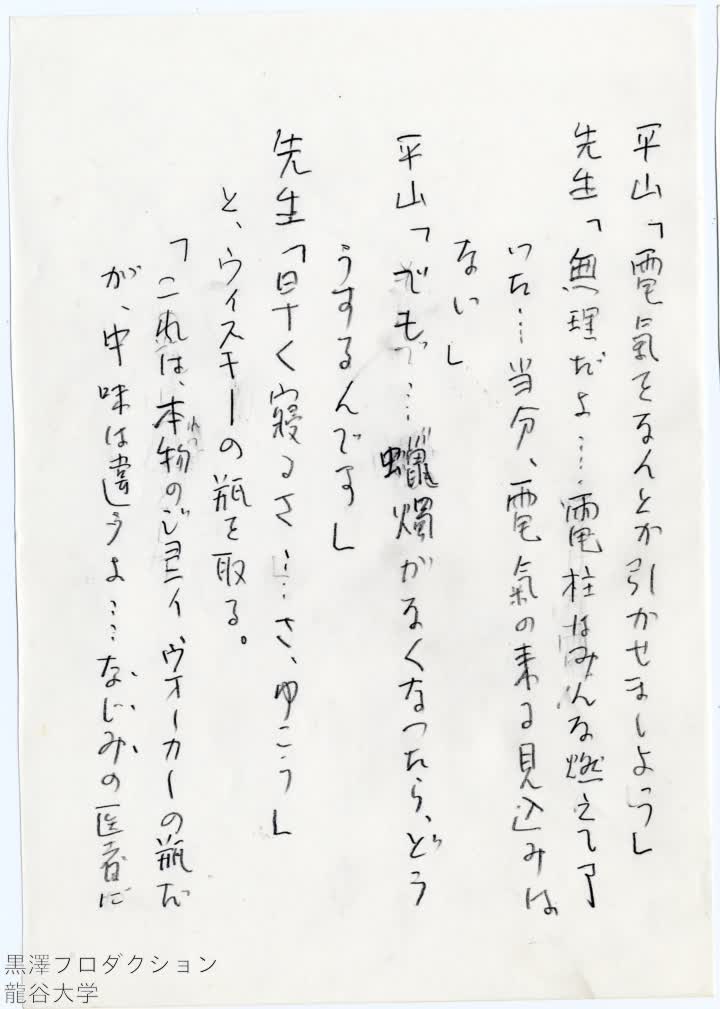 平山「電氣をなんとか引かせましょう」
先生「無理だよ……電柱はみんな燃えて了
いた…当分、電氣の来る見込みは
ない」
平山「でも…蠟燭がなくなったら、ど
うするんです」
先生「早く寝るさ……さ、ゆこう」
と、ウィスキーの瓶を取る。
「これは、本物のジョニイ、ウォーカーの瓶だ
が、中味は違うよ……なじみの医者に
黒澤プロダクション
龍谷大学